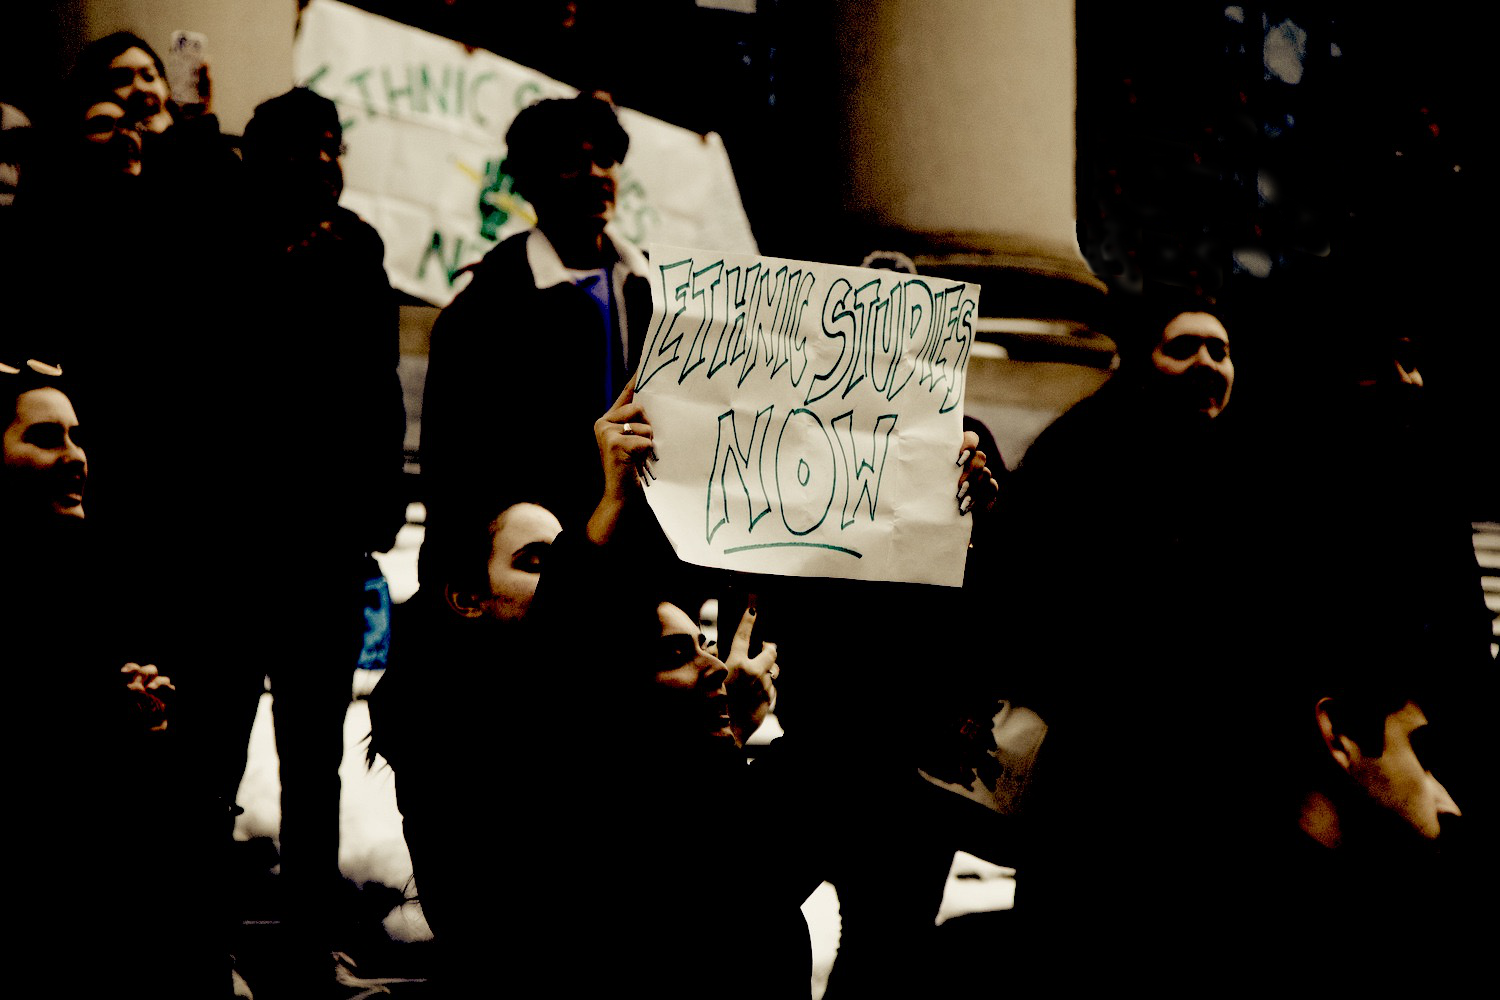 ETHNIC S
ES
N
ETHNIC STUDIES
NOW